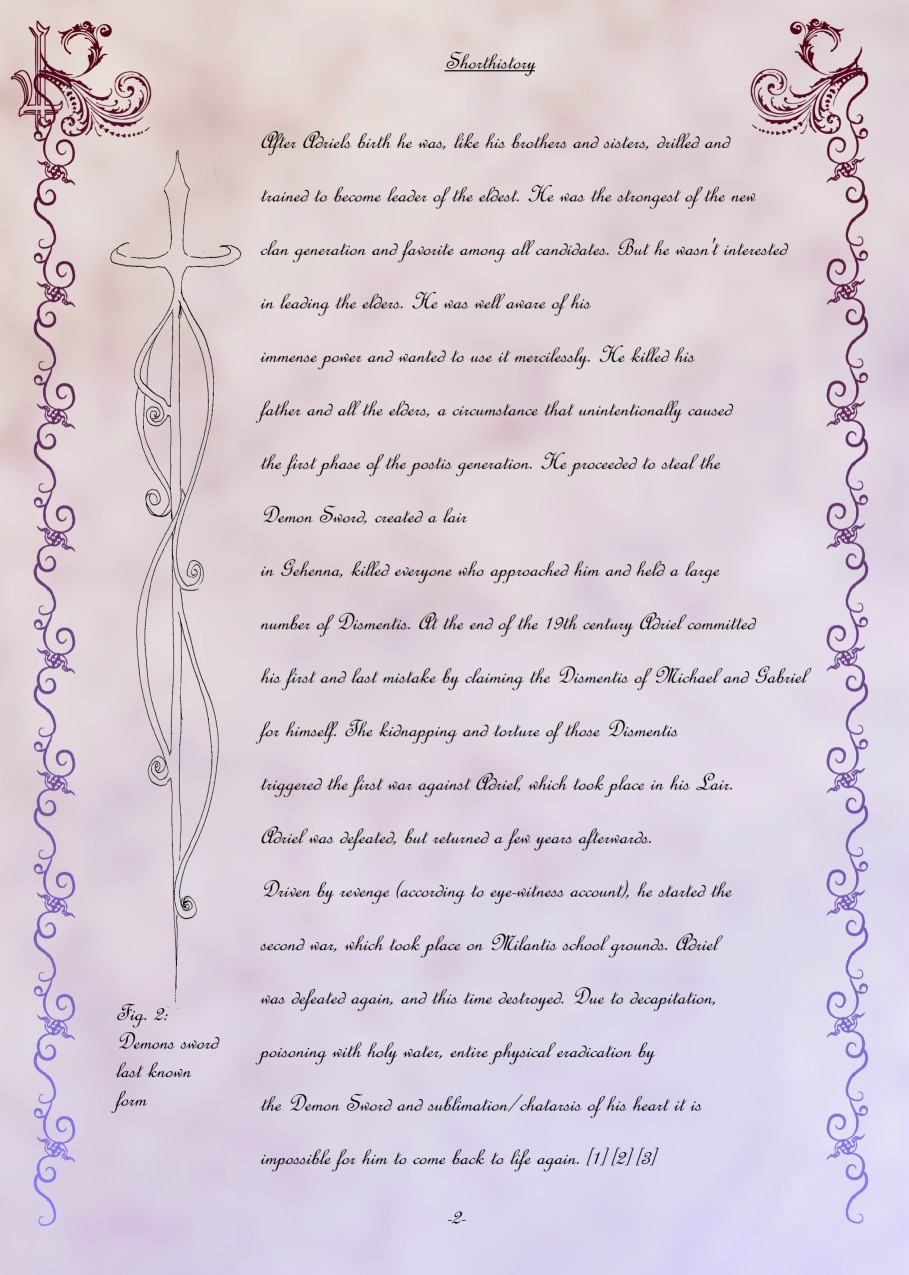 Shorthistory
After Adriels birth he was, like his brothers and sisters, drilled and
trained to become leader of the eldest. He was the strongest of the new
clan generation and favorite among all candidates. But he wasn't interested
in leading the elders. He was well aware of his
immense power and wanted to use it mercilessly. He killed his
father and all the elders, a circumstance that unintentionally caused
the first phase of the postis generation. He proceeded to steal the
Demon Sword, created a lair
in Gehenna, killed everyone who approached him and held a large
number of Dismentis. At the end of the 19th century Adriel committed
his first and last mistake by claiming the Dismentis of Michael and Gabriel
for himself. The kidnapping and torture of those Dismentis
triggered the first war against Adriel, which took place in his Lair.
Adriel was defeated, but returned a few years afterwards.
Driven by revenge (according to eye-witness account), he started the
second war, which took place on Milantis school grounds. Adriel
was defeated again, and this time destroyed. Due to decapitation,
poisoning with holy water, entire physical eradication by
the Demon Sword and sublimation/chatarsis of his heart it is
impossible for him to come back to life again. [1] [2] [3]
Fig. 2:
Demons sword
last known
form
-2-